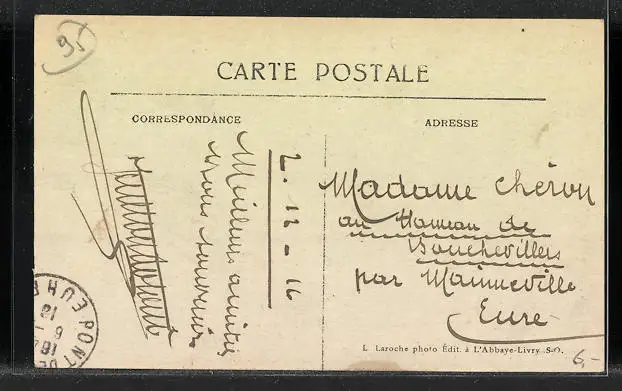 95
CARTE POSTALE
CORRESPONDANCE
ADRESSE
2. 12 - 16
Meilleures amitiés
Madame Chéron
au Hameau de
Bouchevillers
par Mainneville
Eure
PONT DE
L. Laroche photo Édit. à L'Abbaye-Livry S-O.
6,-